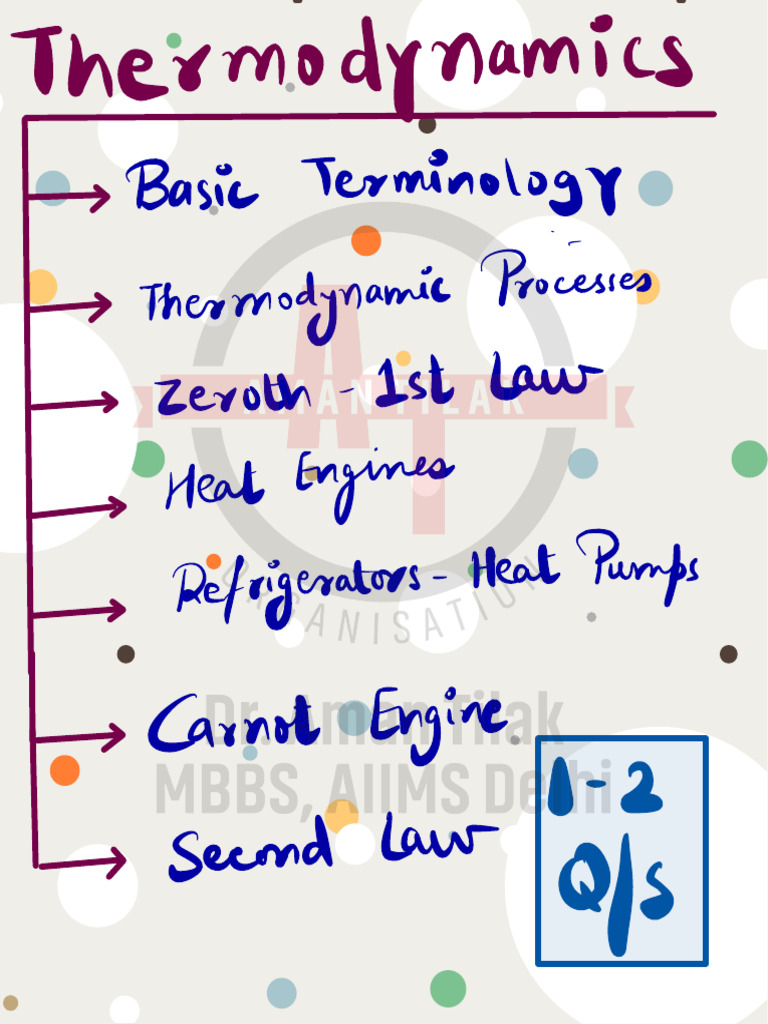 Thermodynamics
Basic Terminology
Thermodynamic Processes
Zeroth - 1st Law
AMAN TILAK
Heat Engines
Refrigerators - Heat Pumps
ORGANISATION
Carnot Engine
Dr. Aman Tilak
MBBS, AIIMS Delhi
1-2
Q/s
Second Law